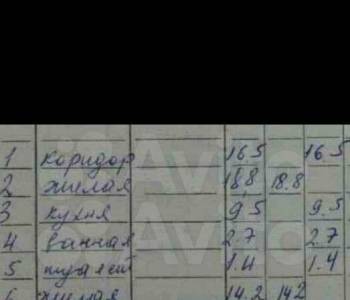 1 коридор 16.5 16.5
2 жилая 18.8 18.8
3 кухня 9.5 9.5
4 ванная 2.7 2.7
5 туалет 1.4 1.4
6 жилая 14.2 14.2
Avito